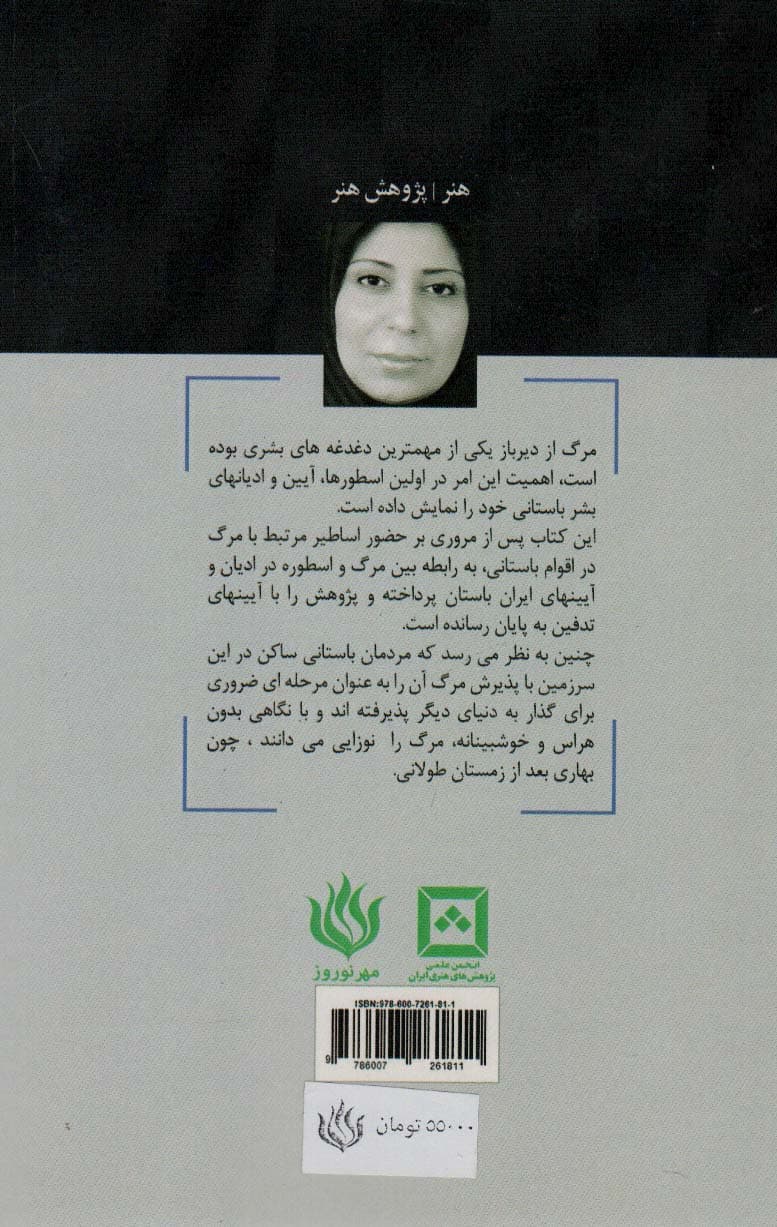 هنر | پژوهش هنر
مرگ از دیرباز یکی از مهمترین دغدغه های بشری بوده
است، اهمیت این امر در اولین اسطورها، آیین و ادیانهای
بشر باستانی خود را نمایش داده است.
این کتاب پس از مروری بر حضور اساطیر مرتبط با مرگ
در اقوام باستانی، به رابطه بین مرگ و اسطوره در ادیان و
آیینهای ایران باستان پرداخته و پژوهش را با آیینهای
تدفین به پایان رسانده است.
چنین به نظر می رسد که مردمان باستانی ساکن در این
سرزمین با پذیرش مرگ آن را به عنوان مرحله ای ضروری
برای گذار به دنیای دیگر پذیرفته اند و با نگاهی بدون
هراس و خوشبینانه، مرگ را نوزایی می دانند ، چون
بهاری بعد از زمستان طولانی.
انجمن علمی
پژوهش های هنری ایران
مهرنوروز
ISBN:978-600-7261-81-1
9 786007 261811
۵۵۰۰۰ تومان